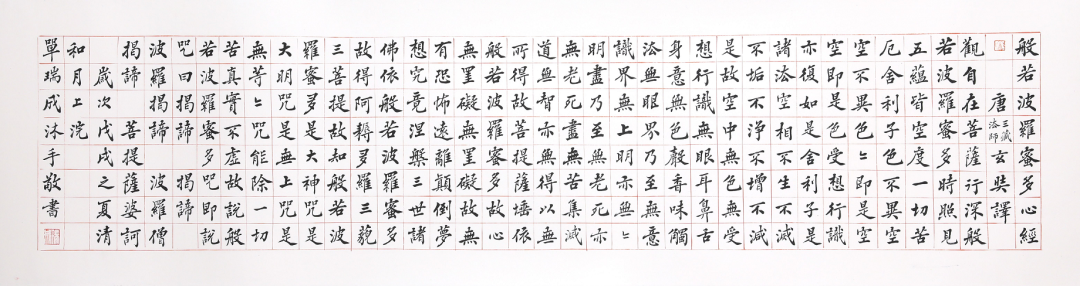 般若波羅蜜多心經
唐三藏法師玄奘譯
觀自在菩薩行深般
若波羅蜜多時照見
五蘊皆空度一切苦
厄舍利子色不異空
空不異色〻即是空
空即是色受想行識
亦復如是舍利子是
諸法空相不生不滅
不垢不淨不增不減
是故空中無色無受
想行識無眼耳鼻舌
身意無色聲香味觸
法無眼界乃至無意
識界無〻明亦無〻
明盡乃至無老死亦
無老死盡無苦集滅
道無智亦無得以無
所得故菩提薩埵依
般若波羅蜜多故心
無罣礙無罣礙故無
有恐怖遠離顛倒夢
想究竟涅槃三世諸
佛依般若波羅蜜多
故得阿耨多羅三藐
三菩提故知般若波
羅蜜多是大神咒是
大明咒是無上咒是
無等〻咒能除一切
苦真實不虛故說般
若波羅蜜多咒即說
咒曰揭諦揭諦
波羅揭諦波羅僧
揭諦菩提薩婆訶
歲次戊戌之夏清
和月上浣
單瑞成沐手敬書